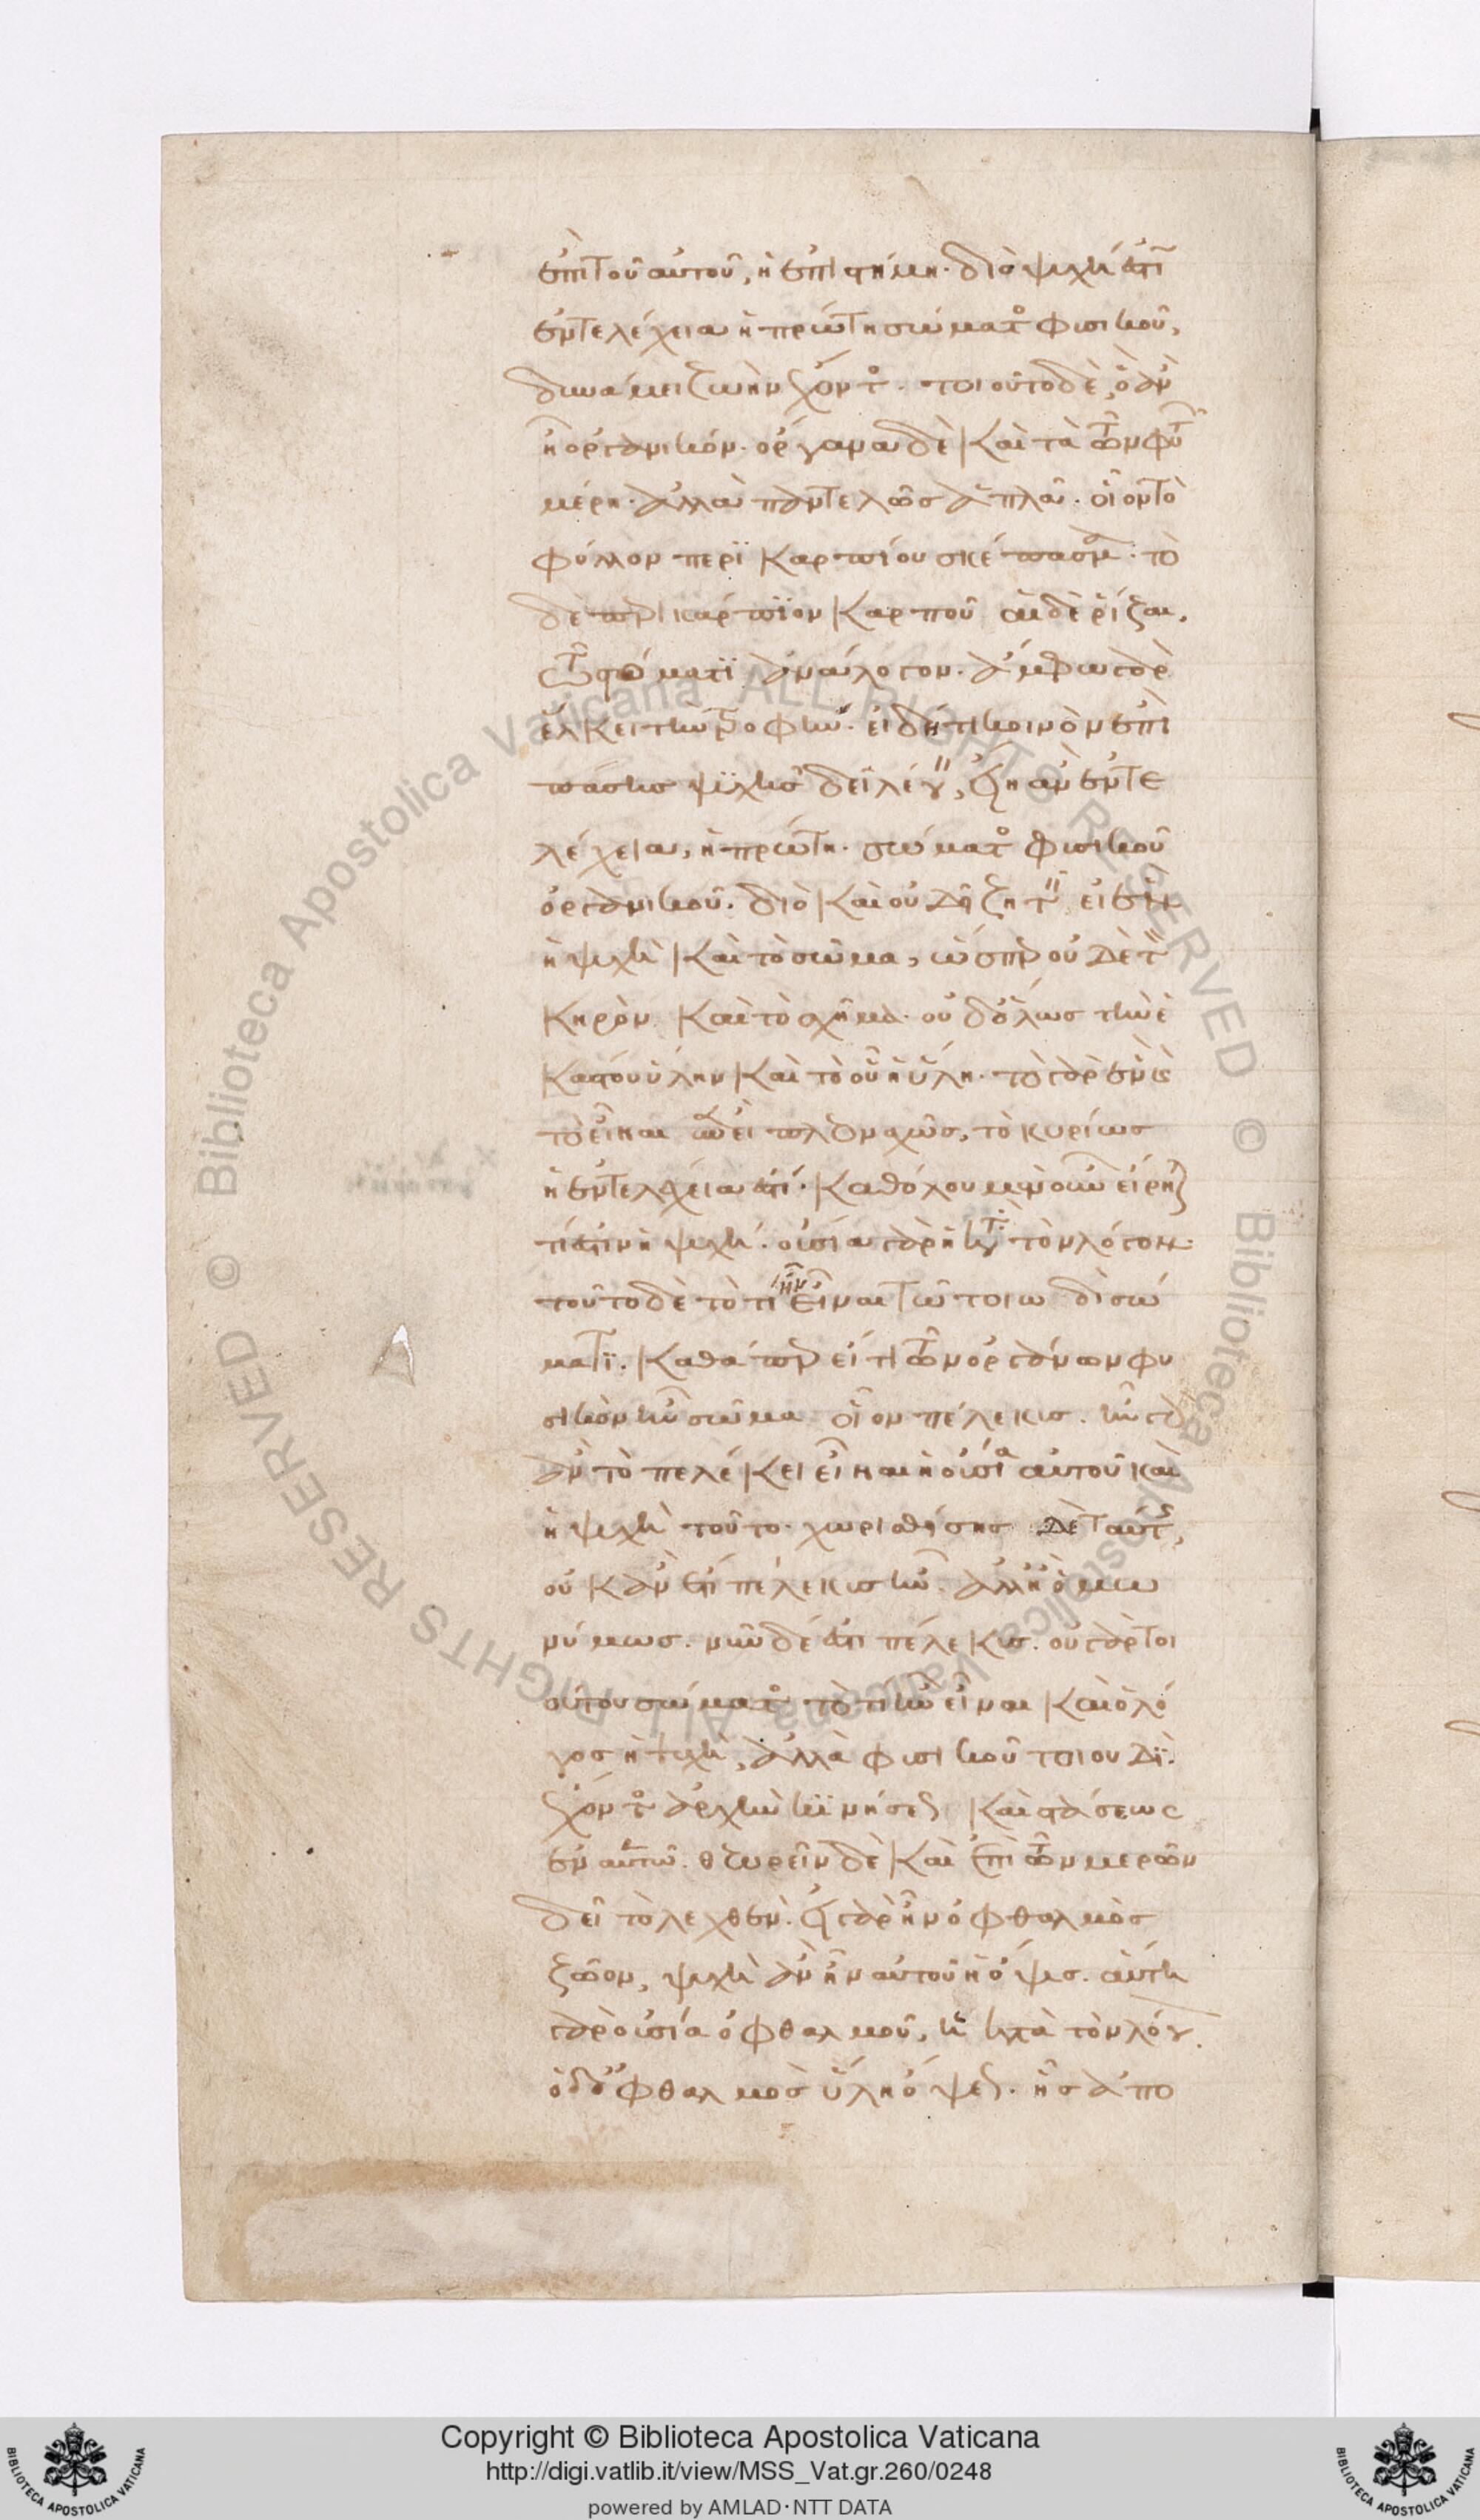 ἐπὶ τοῦ αὐτοῦ, ἡ ἐπιστήμη· διὸ ψυχή ἐστι
ἐντελέχεια ἡ πρώτη σώματος φυσικοῦ,
δυνάμει ζωὴν ἔχοντος· τοιοῦτο δὲ, ὃ ἂν
ᾖ ὀργανικόν· ὄργανα δὲ καὶ τὰ τῶν φυτῶν
μέρη· ἀλλὰ παντελῶς ἁπλᾶ· οἷον τὸ
φύλλον περικαρπίου σκέπασμα· τὸ
δὲ περικάρπιον καρποῦ αἱ δὲ ῥίζαι,
τῷ στόματι ἀνάλογον· ἄμφω γὰρ
ἕλκει τὴν τροφήν· εἰ δή τι κοινὸν ἐπὶ
πάσης ψυχῆς δεῖ λέγειν, εἴη ἂν ἐντε
λέχεια, ἡ πρώτη· σώματος φυσικοῦ
ὀργανικοῦ· διὸ καὶ οὐ δεῖ ζητεῖν εἰ ἓν
ἡ ψυχὴ καὶ τὸ σῶμα, ὥσπερ οὐδὲ τὸν
κηρὸν καὶ τὸ σχῆμα· οὐδ' ὅλως τὴν ἑ
κάστου ὕλην καὶ τὸ οὗ ἡ ὕλη· τὸ γὰρ ἓν καὶ
τὸ εἶναι ἐπεὶ πλεοναχῶς, τὸ κυρίως
ἡ ἐντελέχειά ἐστι· καθόλου μὲν οὖν εἴρηται
τί ἐστιν ἡ ψυχή· οὐσία γὰρ ἡ κατὰ τὸν λόγον·
τοῦτο δὲ τὸ τί ἦν εἶναι τῶ τοιωδὶ σώ
ματι· καθάπερ εἴ τι τῶν ὀργάνων φυ
σικὸν ἦν σῶμα οἷον πέλεκυς· ἦν γὰρ
ἂν τὸ πελέκει εἶναι ἡ οὐσία αὐτοῦ καὶ
ἡ ψυχὴ τοῦτο· χωρισθείσης δὲ ταύτης,
οὐκ ἂν ἔτι πέλεκυς ἦν· ἀλλ' ἢ ὁμω
νύμως· νῦν δέ ἐστι πέλεκυς· οὐ γὰρ τοι
ούτου σώματος τὸ τί ἦν εἶναι καὶ ὁ λό
γος ἡ ψυχὴ, ἀλλὰ φυσικοῦ τοιουδὶ·
ἔχοντος ἀρχὴν κινήσεως καὶ στάσεως
ἐν αὑτῶ· θεωρεῖν δὲ καὶ ἐπὶ τῶν μερῶν
δεῖ τὸ λεχθὲν· εἰ γὰρ ἦν ὁ ὀφθαλμὸς
ζῶον, ψυχὴ ἂν ἦν αὐτοῦ ἡ ὄψις· αὕτη
γὰρ οὐσία ὀφθαλμοῦ, ἡ κατὰ τὸν λόγον·
ὁ δ' ὀφθαλμὸς ὕλη ὄψεως· ἧς ἀπο
Copyright © Biblioteca Apostolica Vaticana
http://digi.vatlib.it/view/MSS_Vat.gr.260/0248
powered by AMLAD·NTT DATA